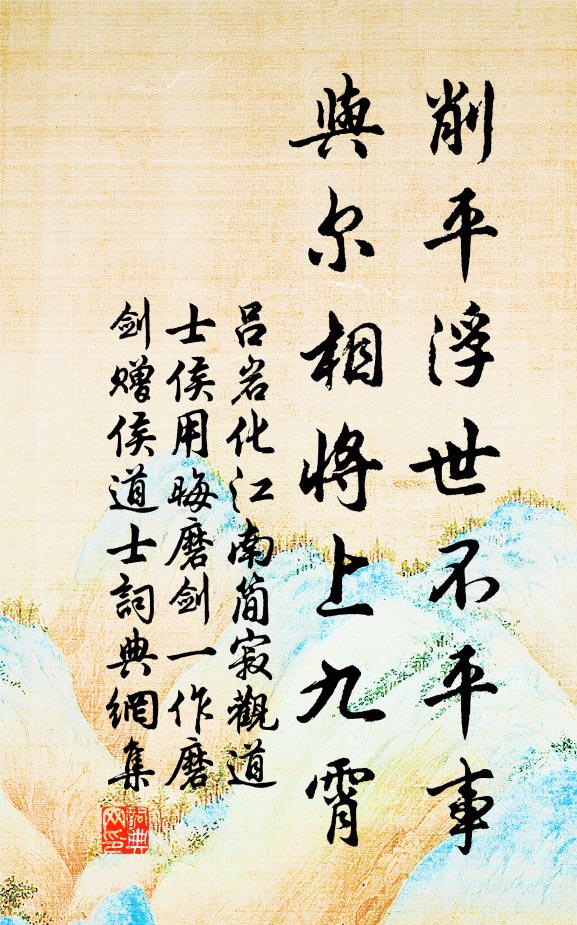 削平浮世不平事
與尔相將上九霄
吕岩化江南簡寂觀道
士侯用晦磨劍一作磨
劍贈侯道士詞典網集
詞典
网印